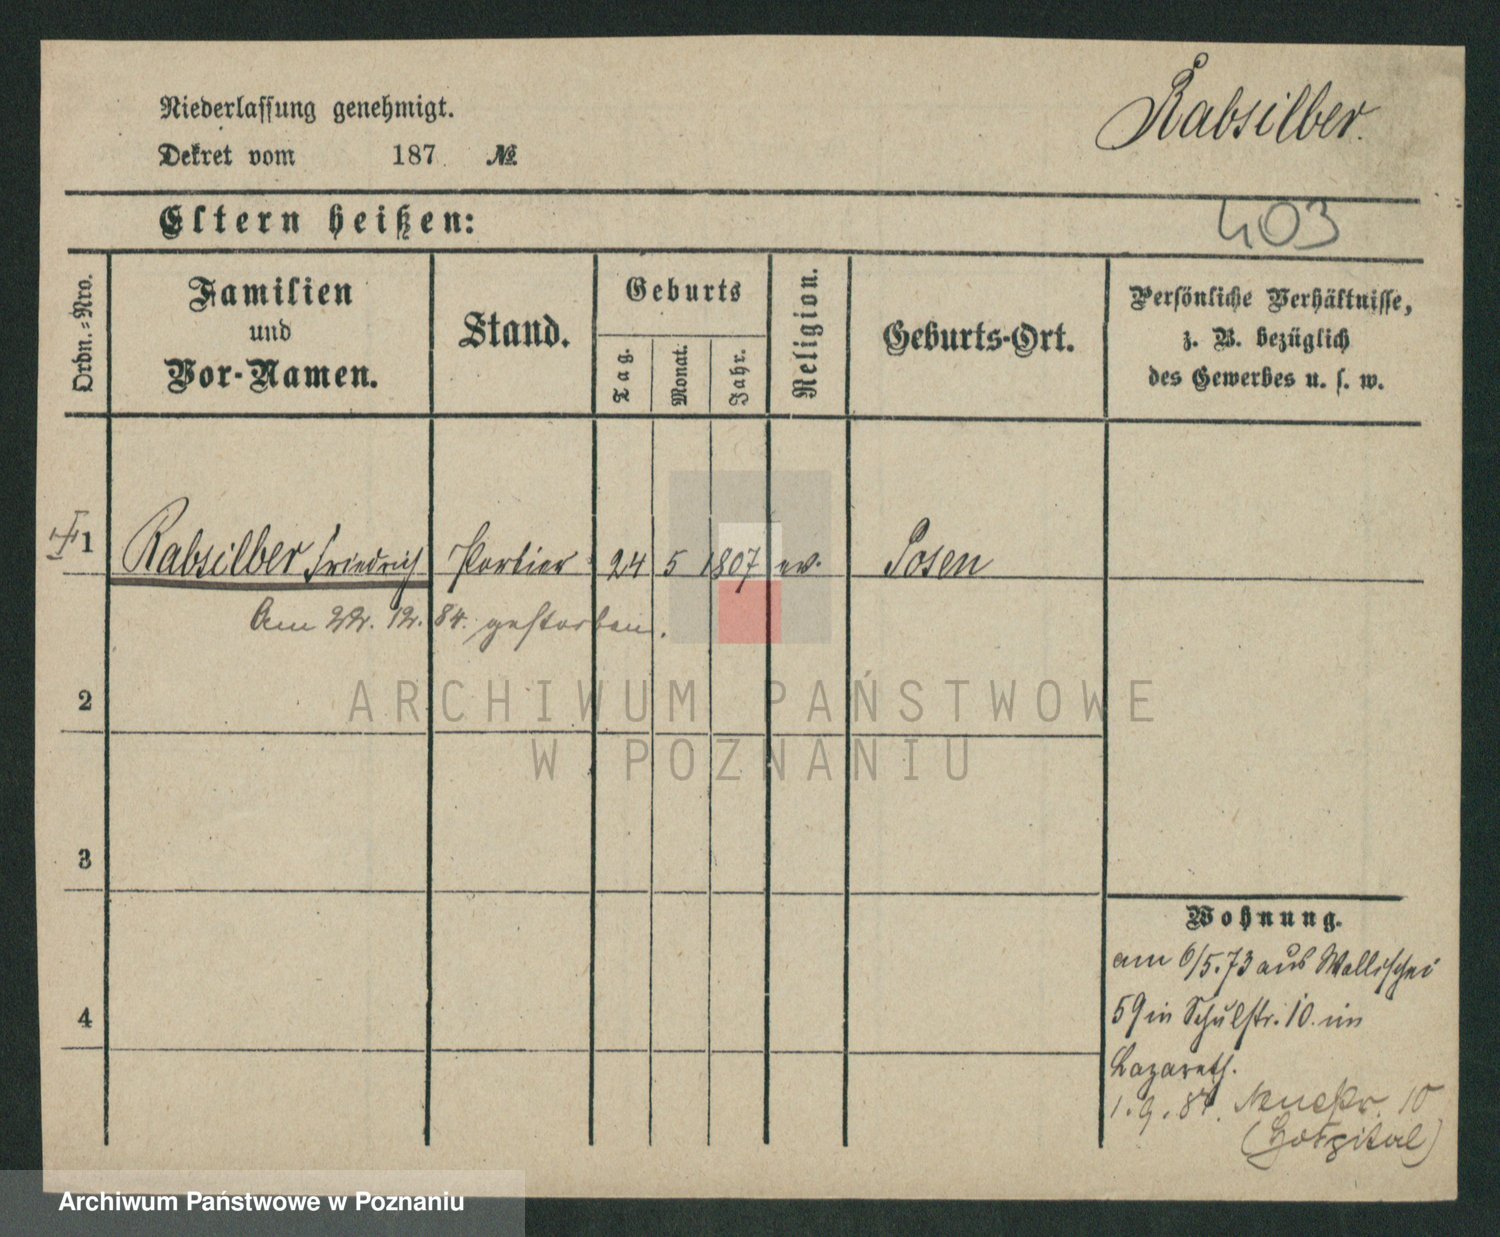 Niederlassung genehmigt.
Rabsilber.
Dekret vom 187 №
Eltern heißen:
403
Ordn.-Nro.
Familien
und
Vor-Namen.
Stand.
Geburts
Tag.
Monat.
Jahr.
Religion.
Geburts-Ort.
Persönliche Verhältnisse,
z. B. bezüglich
des Gewerbes u. s. w.
1 Rabsilber Friedrich Portier 24 5 1807 ev. Posen
Am 22. 12. 84. gestorben.
2
ARCHIWUM PAŃSTWOWE
W POZNANIU
3
4
Wohnung.
am 6/5.73 aus Wallischei
59 in Schulstr. 10. im
Lazareth.
1. 9. 81. Neuestr. 10
(Hospital)
Archiwum Państwowe w Poznaniu